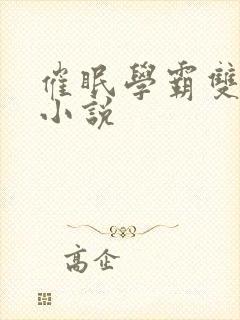 催眠學霸雙
小說
高企